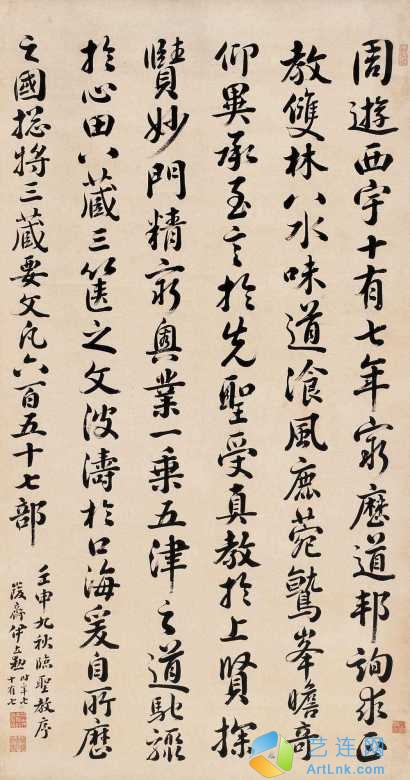 周遊西宇十有七年窮歷道邦詢求正
教雙林八水味道飡風鹿菀鷲峯瞻奇
仰異承至言於先聖受真教於上賢探
賾妙門精窮奧業一乘五津之道馳驟
於心田八藏三篋之文波濤於口海爰自所歷
之國揔將三藏要文凡六百五十七部
壬申九秋臨聖教序
齋伊立勳時年七
十有七
艺连网
ArtLink.cn